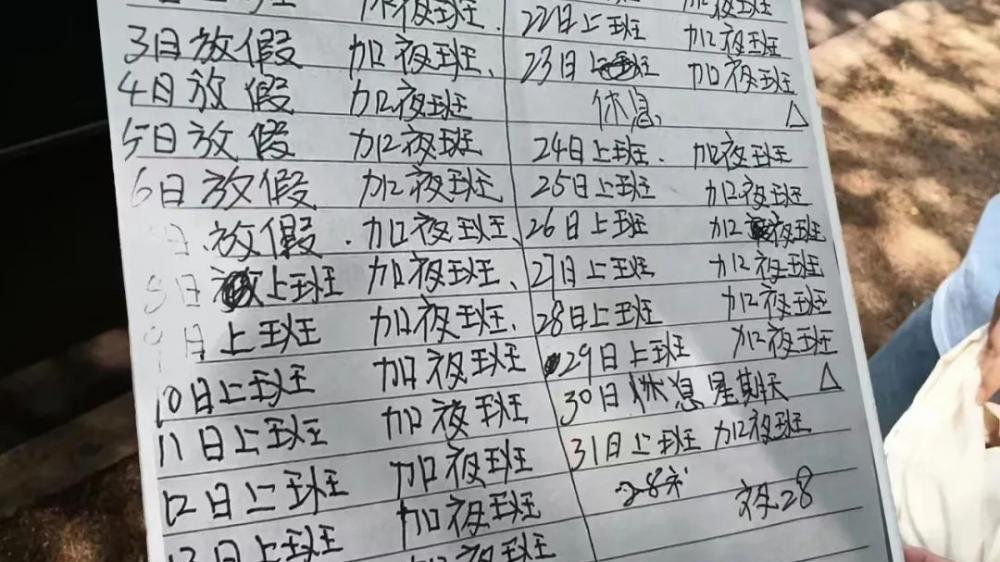 加夜班
3日放假 加夜班、
4日放假 加夜班
5日放假 加12夜班
6日放假 加12夜班
放假 加12夜班、
8日 上班 加夜班、
9日 上班 加夜班.
10日上班 加夜班
11日上班 加夜班
12日上班 加夜班
13日上班 加夜班
加夜班
加12夜班
22日上班 加12夜班
23日 班 加夜班
休息 △
24日上班. 加12夜班
25日上班 加12夜班
26日上班 加12夜班
27日上班 加12夜班
28日上班 加12夜班
29日上班 加12夜班
30日休息星期天 △
31日上班 加12夜班
28
夜28